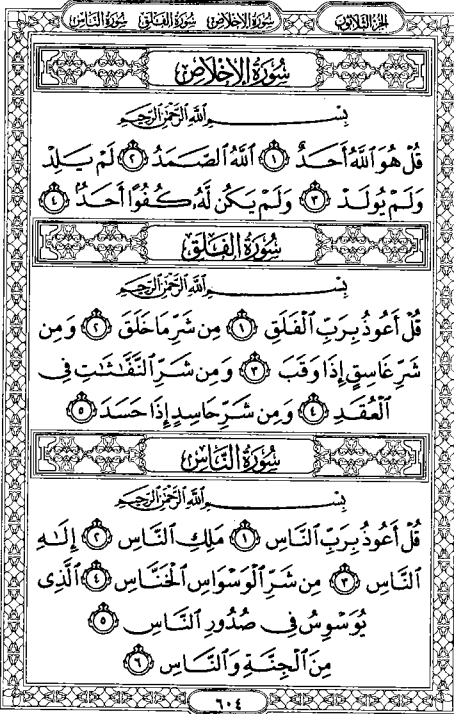 سُورَةُ الإِخْلَاصِ سُورَةُ الفَلَقِ سُورَةُ النَّاسِ
الجُزْءُ الثَّلَاثُونَ
سُورَةُ الإِخْلَاصِ
بِسْمِ ٱللَّهِ ٱلرَّحْمَٰنِ ٱلرَّحِيمِ
قُلْ هُوَ ٱللَّهُ أَحَدٌ ١ ٱللَّهُ ٱلصَّمَدُ ٢ لَمْ يَلِدْ
وَلَمْ يُولَدْ ٣ وَلَمْ يَكُن لَّهُۥ كُفُوًا أَحَدٌۢ ٤
سُورَةُ الفَلَقِ
بِسْمِ ٱللَّهِ ٱلرَّحْمَٰنِ ٱلرَّحِيمِ
قُلْ أَعُوذُ بِرَبِّ ٱلْفَلَقِ ١ مِن شَرِّ مَا خَلَقَ ٢ وَمِن
شَرِّ غَاسِقٍ إِذَا وَقَبَ ٣ وَمِن شَرِّ ٱلنَّفَّٰثَٰتِ فِى
ٱلْعُقَدِ ٤ وَمِن شَرِّ حَاسِدٍ إِذَا حَسَدَ ٥
سُورَةُ النَّاسِ
بِسْمِ ٱللَّهِ ٱلرَّحْمَٰنِ ٱلرَّحِيمِ
قُلْ أَعُوذُ بِرَبِّ ٱلنَّاسِ ١ مَلِكِ ٱلنَّاسِ ٢ إِلَٰهِ
ٱلنَّاسِ ٣ مِن شَرِّ ٱلْوَسْوَاسِ ٱلْخَنَّاسِ ٤ ٱلَّذِى
يُوَسْوِسُ فِى صُدُورِ ٱلنَّاسِ ٥
مِنَ ٱلْجِنَّةِ وَٱلنَّاسِ ٦
٦٠٤